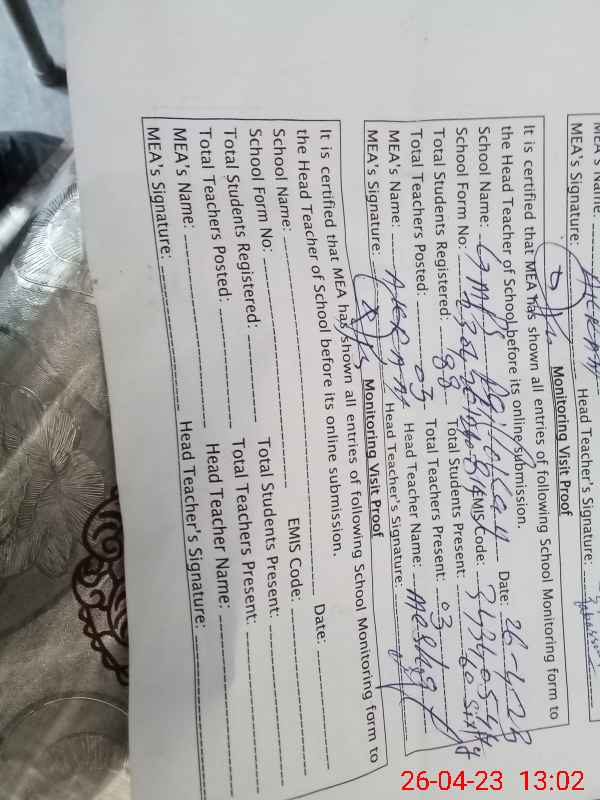 MEA's Name:
MEA's Signature: Head Teacher's Signature:
Monitoring Visit Proof
It is certified that MEA has shown all entries of following School Monitoring form to
the Head Teacher of School before its online submission.
School Name: GMPS Date: 26-4-23
School Form No: EMIS Code:
Total Students Registered: 88 Total Students Present: 60 Sixty
Total Teachers Posted: 03 Total Teachers Present: 03
MEA's Name: Head Teacher Name:
MEA's Signature: Head Teacher's Signature:
Monitoring Visit Proof
It is certified that MEA has shown all entries of following School Monitoring form to
the Head Teacher of School before its online submission.
School Name: Date:
School Form No: EMIS Code:
Total Students Registered: Total Students Present:
Total Teachers Posted: Total Teachers Present:
MEA's Name: Head Teacher Name:
MEA's Signature: Head Teacher's Signature:
26-04-23 13:02